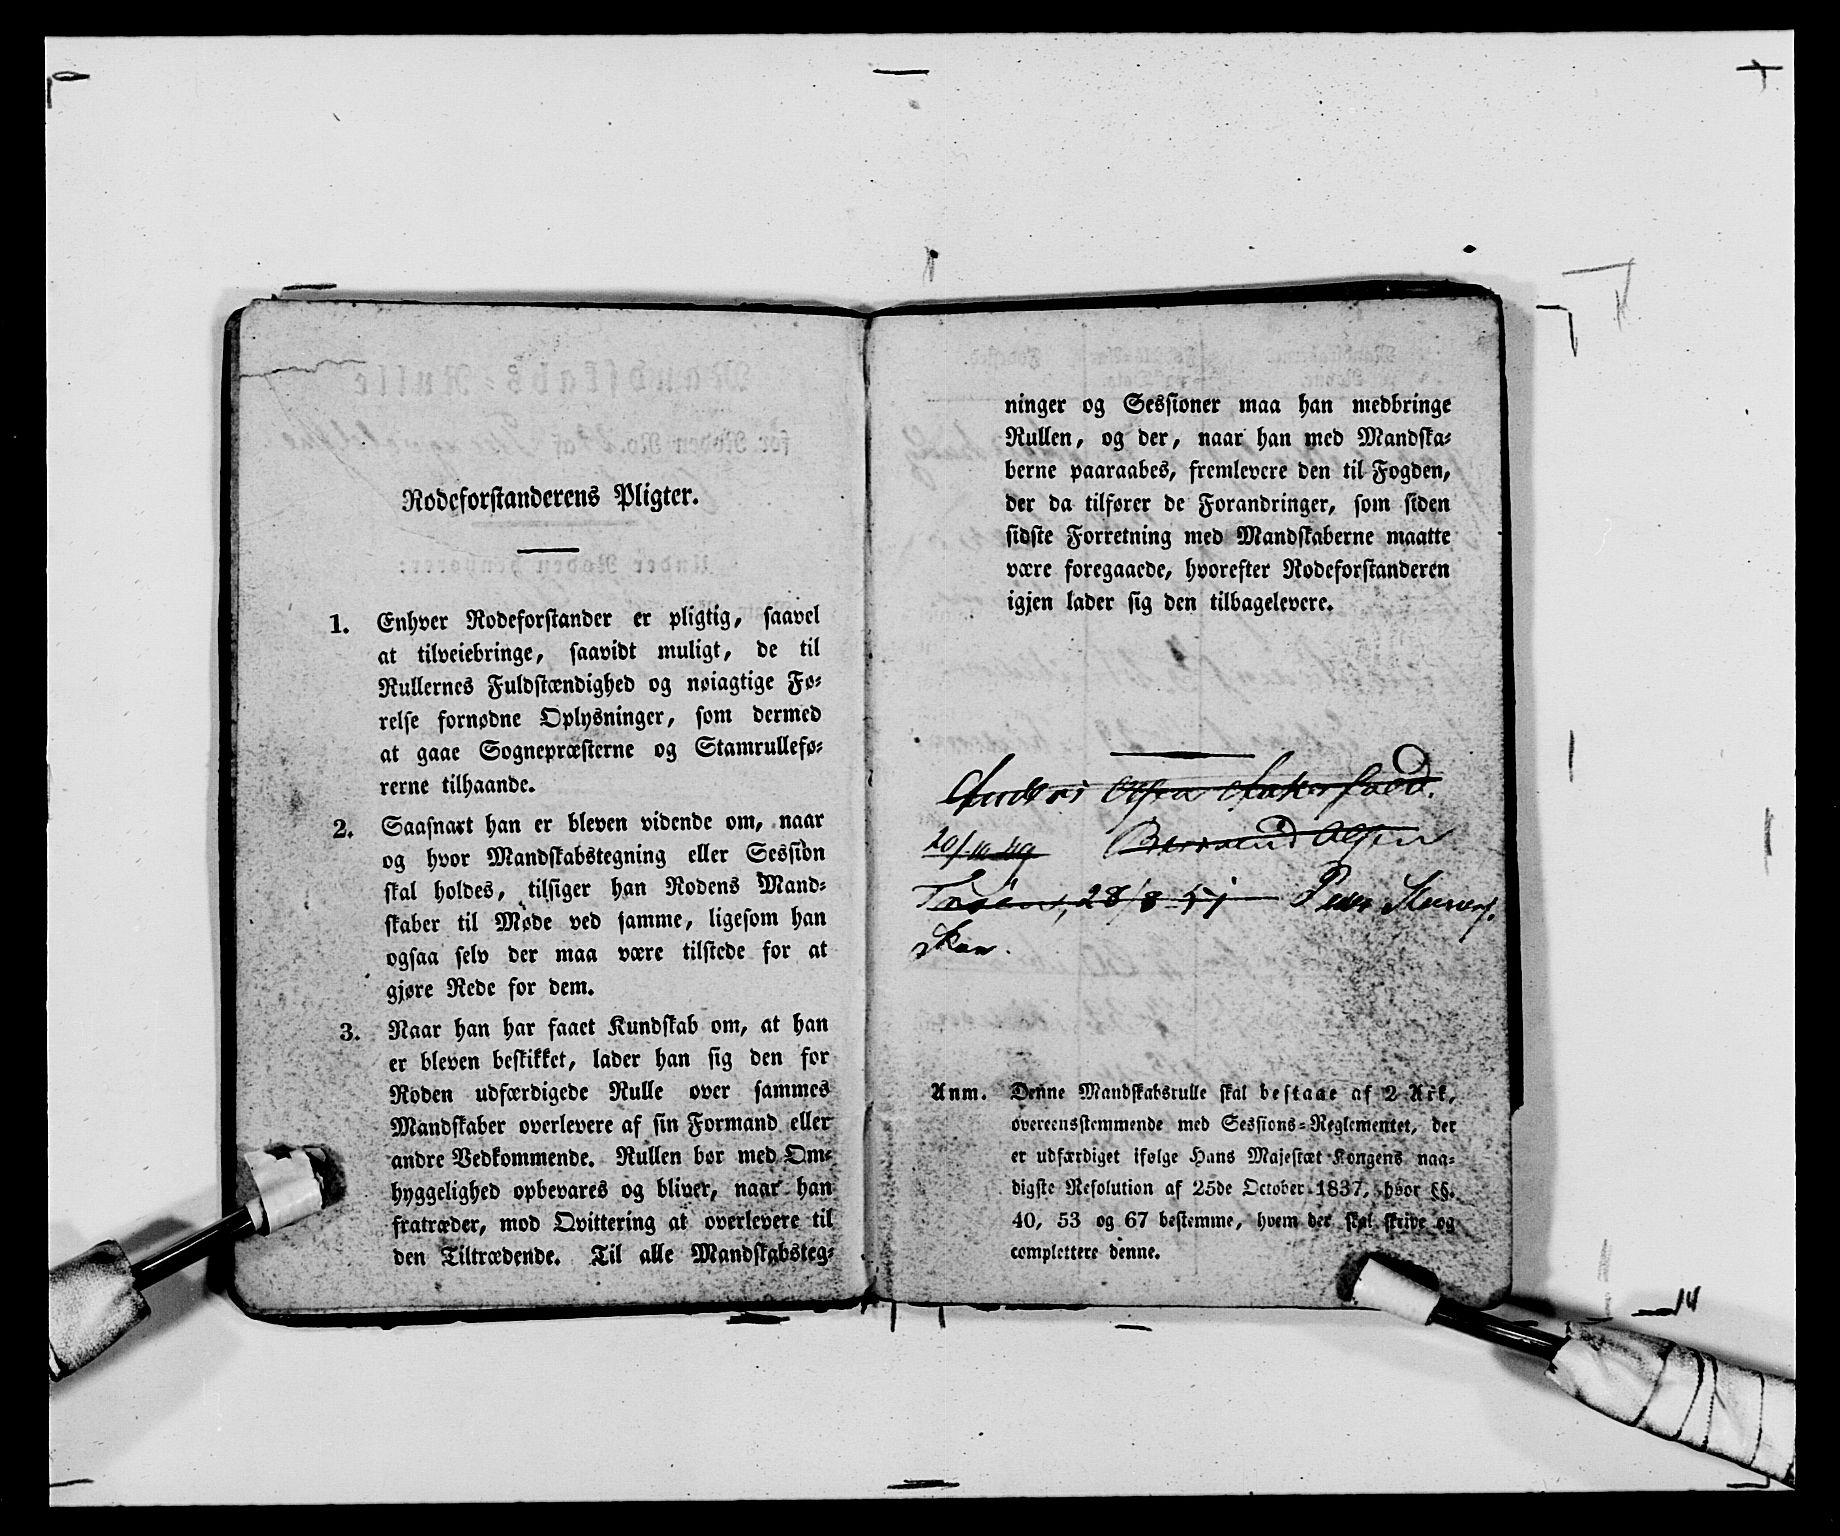 Rodeforstanderens Pligter.
1. Enhver Rodeforstander er pligtig, saavel
at tilveiebringe, saavidt muligt, de til
Rullernes Fuldstændighed og nøiagtige Fø-
relse fornødne Oplysninger, som dermed
at gaae Sognepræsterne og Stamrullefø-
rerne tilhaande.
2. Saasnart han er bleven vidende om, naar
og hvor Mandskabstegning eller Session
skal holdes, tilsiger han Rodens Mand-
skaber til Møde ved samme, ligesom han
ogsaa selv der maa være tilstede for at
gjøre Rede for dem.
3. Naar han har faaet Kundskab om, at han
er bleven beskikket, lader han sig den for
Roden udfærdigede Rulle over sammes
Mandskaber overlevere af sin Formand eller
andre Vedkommende. Rullen bør med Om-
hyggelighed opbevares og bliver, naar han
fratræder, mod Qvittering at overlevere til
den Tiltrædende. Til alle Mandskabsteg-
ninger og Sessioner maa han medbringe
Rullen, og der, naar han med Mandska-
berne paaraabes, fremlevere den til Fogden,
der da tilfører de Forandringer, som siden
sidste Forretning med Mandskaberne maatte
være foregaaede, hvorefter Rodeforstanderen
igjen lader sig den tilbagelevere.
Anders Olsen
Olsen
28/8 51 Peder
Anm. Denne Mandskabsrulle skal bestaae af 2 Ark,
overeensstemmende med Sessions-Reglementet, der
er udfærdiget ifølge Hans Majestæt Kongens naa-
digste Resolution af 25de October 1837, hvor §§.
40, 53 og 67 bestemme, hvem der skal skrive og
complettere denne.
14